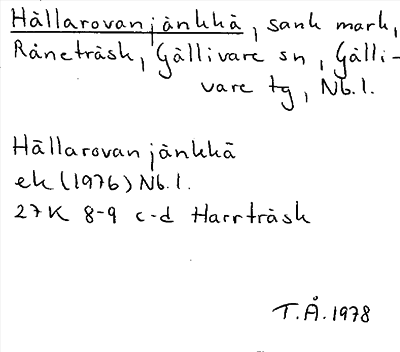 Hällarovanjänkkä, sank mark,
Råneträsk, Gällivare sn, Gälli-
vare tg, Nb.l.
Hällarovanjänkkä
ek (1976) Nb.l.
27K 8-9 c-d Harrträsk
T.Å. 1978